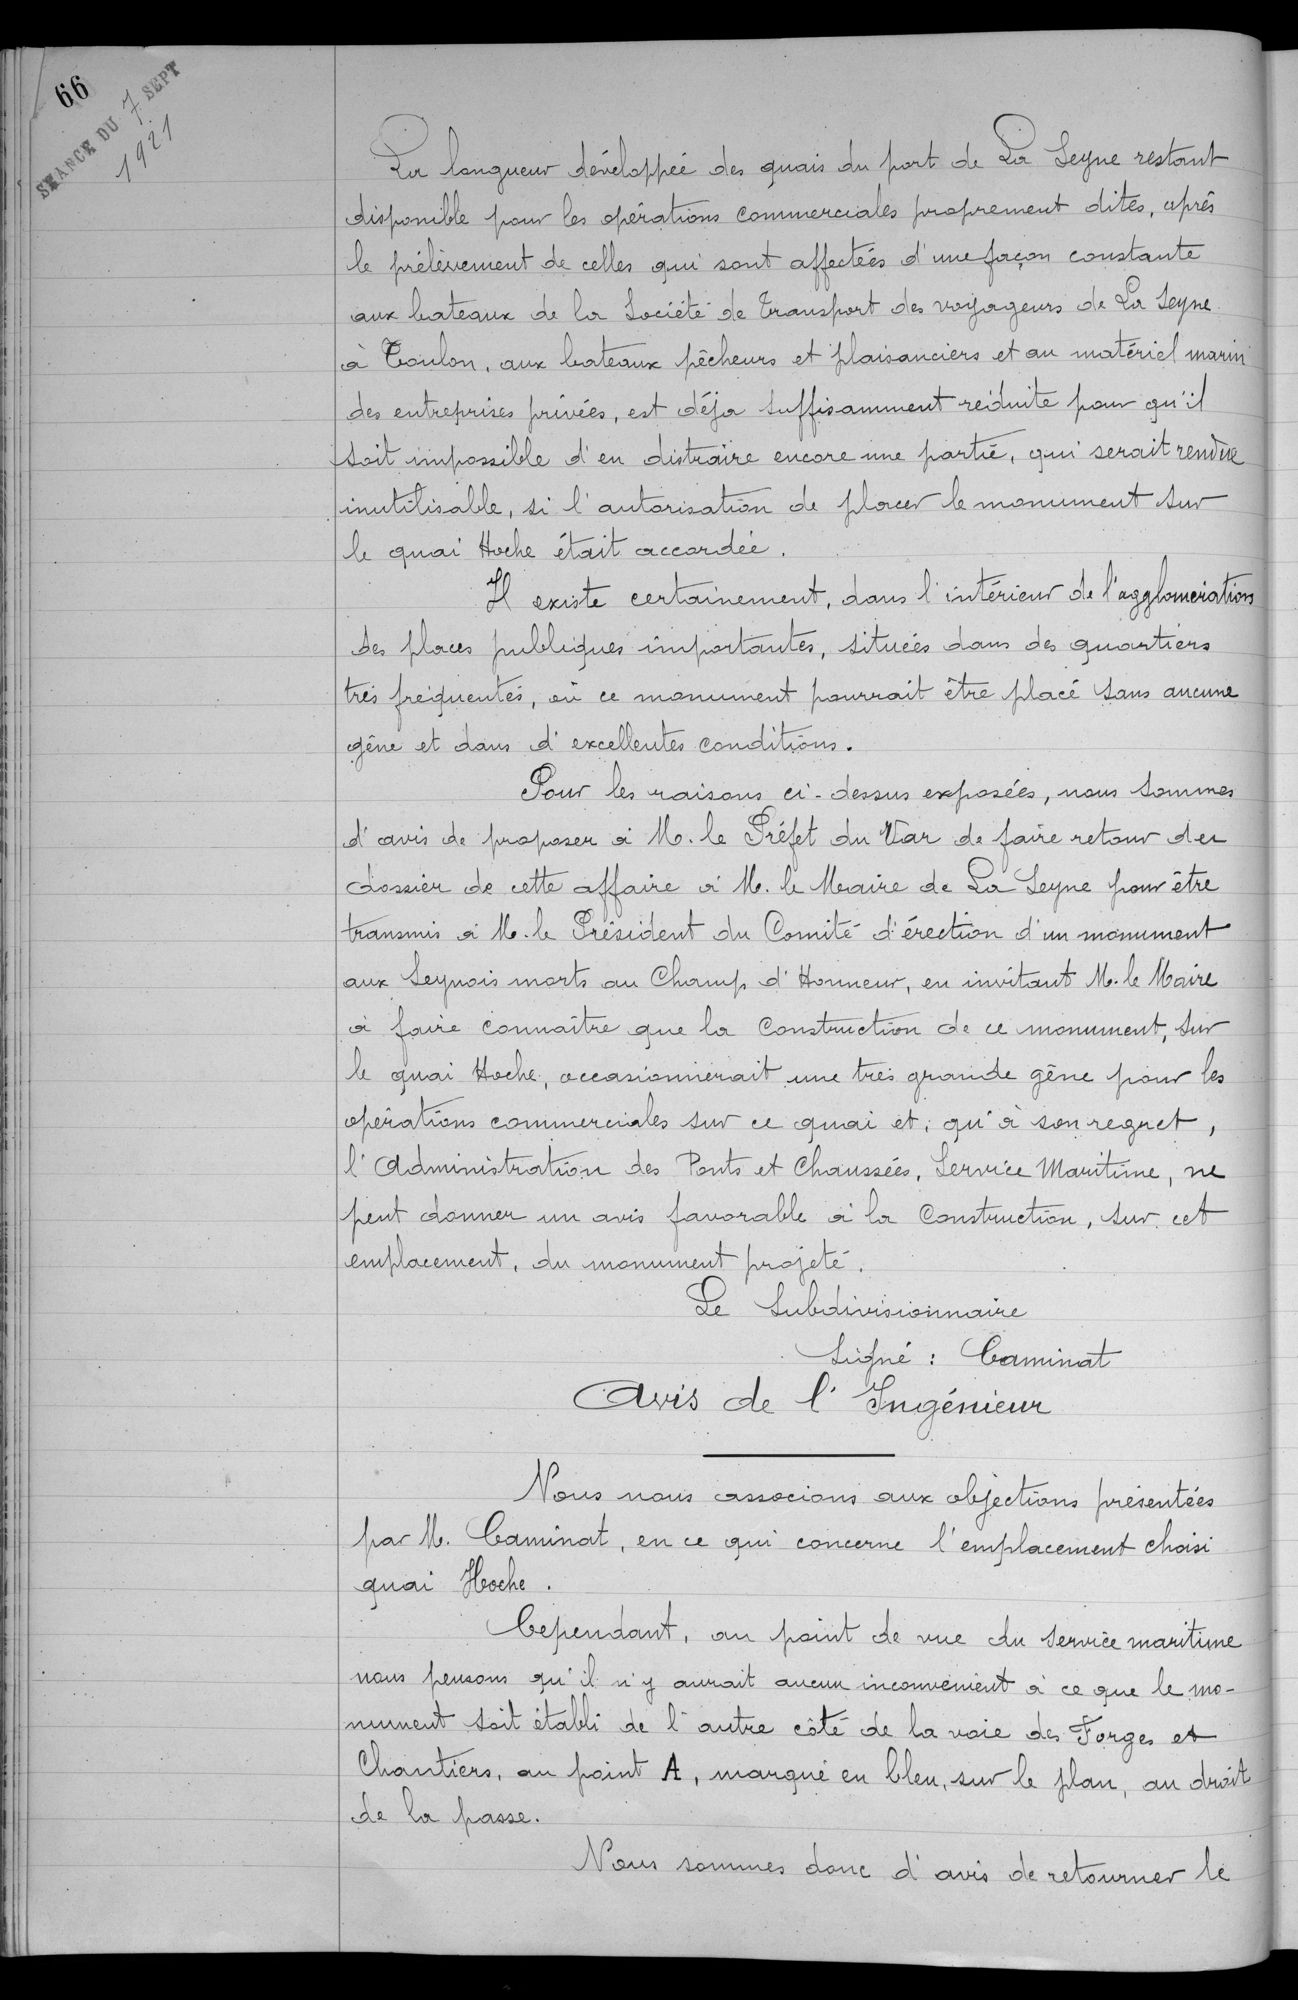 66
SEANCE DU 7 SEPT
1921
La longueur développée des quais du port de La Seyne restant
disponible pour les opérations commerciales proprement dites, après
le prélèvement de celles qui sont affectées d'une façon constante
aux bateaux de la Société de Transport des voyageurs de La Seyne
à Toulon, aux bateaux pêcheurs et plaisanciers et au matériel marin
des entreprises privées, est déja suffisamment réduite pour qu'il
soit impossible d'en distraire encore une partie, qui serait rendue
inutilisable, si l'autorisation de placer le monument sur
le quai Hoche était accordée.
Il existe certainement, dans l'intérieur de l'agglomérations
des places publiques importantes, situées dans des quartiers
très fréquentés, où ce monument pourrait être placé sans aucune
gêne et dans d'excellentes conditions.
Pour les raisons ci-dessus exposées, nous sommes
d'avis de proposer à M. le Préfet du Var de faire retour du
dossier de cette affaire à M. le Maire de La Seyne pour être
transmis à M. le Président du Comité d'érection d'un monument
aux Seynois morts au Champ d'Honneur, en invitant M. le Maire
à faire connaître que la Construction de ce monument, sur
le quai Hoche, occasionnerait une très grande gêne pour les
opérations commerciales sur ce quai et, qu'à son regret,
l'Administration des Ponts et Chaussées, Service Maritime, ne
peut donner un avis favorable à la Construction, sur cet
emplacement, du monument projeté.
Le Subdivisionnaire
Signé : Caminat
Avis de l'Ingénieur
Nous nous associons aux objections présentées
par M. Caminat, en ce qui concerne l'emplacement choisi
quai Hoche.
Cependant, au point de vue du service maritime
nous pensons qu'il n'y aurait aucun inconvénient à ce que le mo-
nument soit établi de l'autre côté de la voie des Forges et
Chantiers, au point A, marqué en bleu, sur le plan, au droit
de la passe.
Nous sommes donc d'avis de retourner le